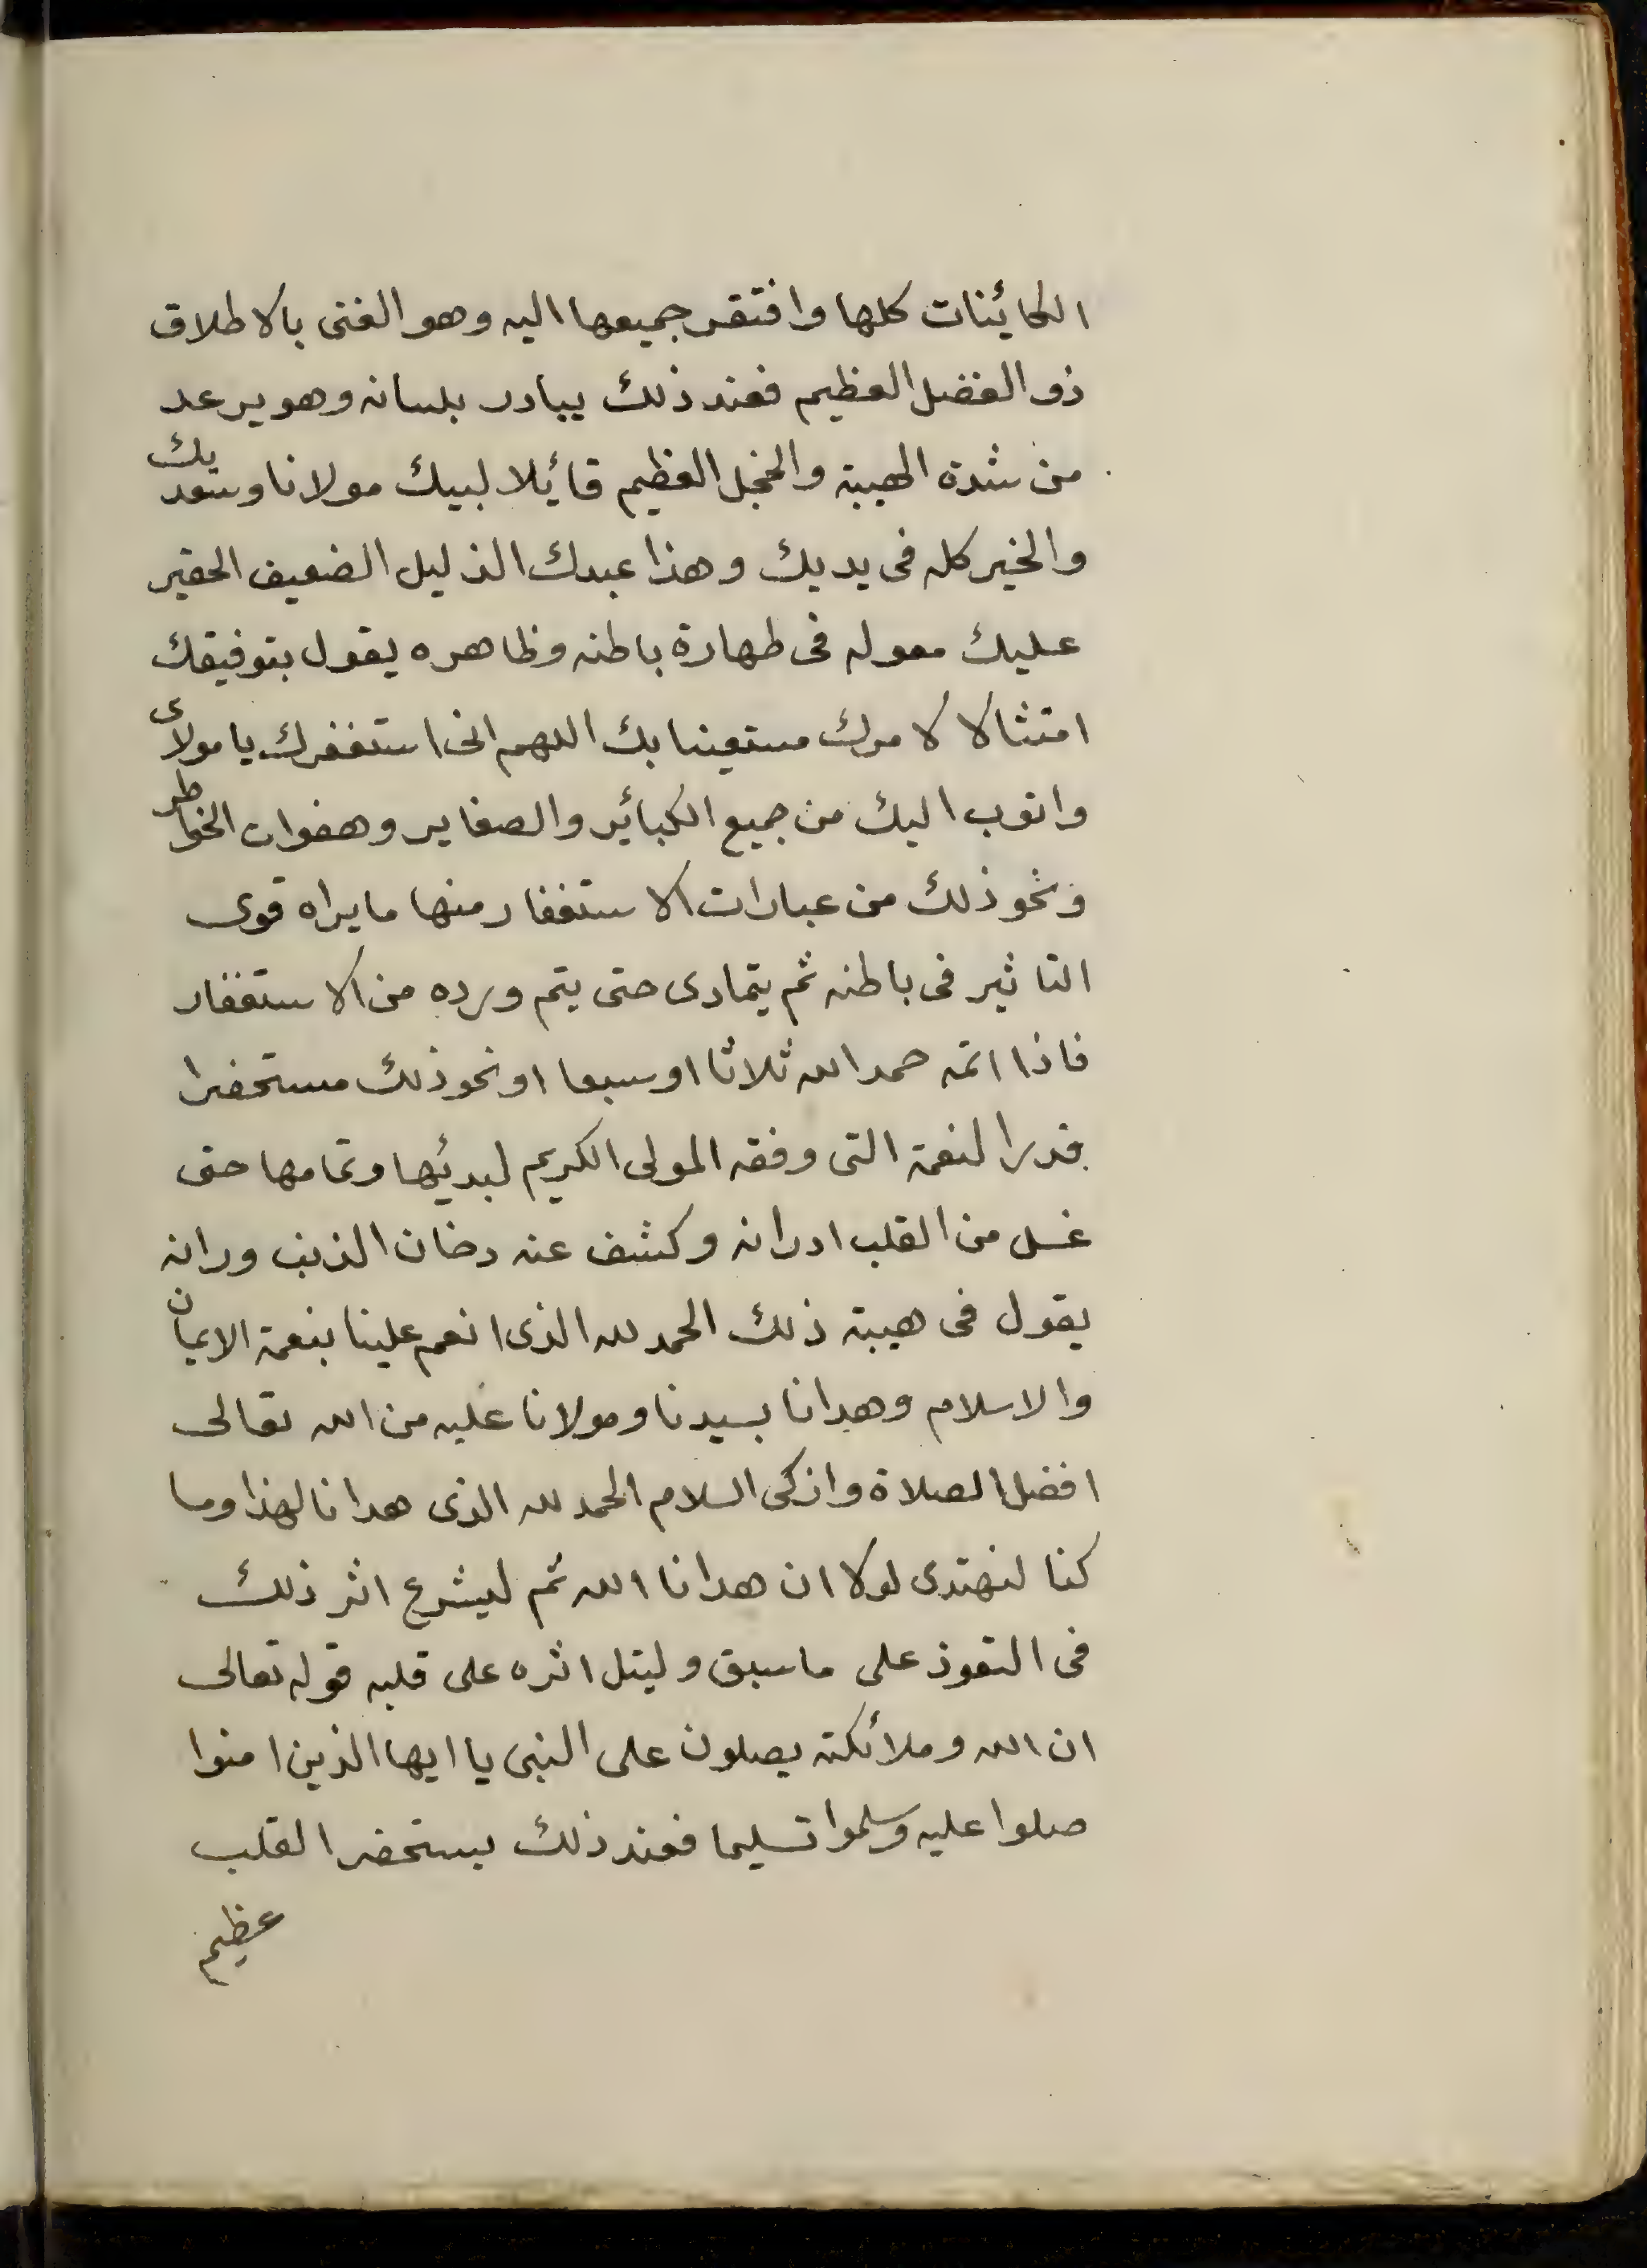 الكائنات كلها وافتقر جميعها اليه وهو الغنى بالاطلاق
ذو الفضل العظيم فعند ذلك يبادر بلسانه وهو يرعد
من شدة الهيبة والخجل العظيم قائلا لبيك مولانا وسعديك
والخير كله فى يديك وهذا عبدك الذليل الضعيف الحقير
عليك معوله فى طهارة باطنه وظاهره يقول بتوفيقك
امتثالا لامرك مستعينا بك اللهم انى استغفرك يا مولاى
واتوب اليك من جميع الكبائر والصغاير وهفوات الخواطر
ونحو ذلك من عبارات الاستغفار منها ما يراه قوى
التاثير فى باطنه ثم يتمادى حتى يتم ورده من الاستغفار
فاذا اتمه حمد الله ثلاثا او سبعا او نحو ذلك مستحضرا
قدر النعمة التى وفقه المولى الكريم لبدئها وتمامها حتى
غسل من القلب ادرانه وكشف عنه دخان الذنب ورانه
يقول فى هيبة ذلك الحمد لله الذى انعم علينا بنعمة الايمان
والاسلام وهدانا بسيدنا ومولانا عليه من الله تعالى
افضل الصلاة وازكى السلام الحمد لله الذى هدانا لهذا وما
كنا لنهتدى لولا ان هدانا الله ثم ليشرع اثر ذلك
فى التعوذ على ما سبق وليتل اثره على قلبه قوله تعالى
ان الله وملائكته يصلون على النبى يا ايها الذين امنوا
صلوا عليه وسلموا تسليما فعند ذلك يستحضر القلب
عظيم